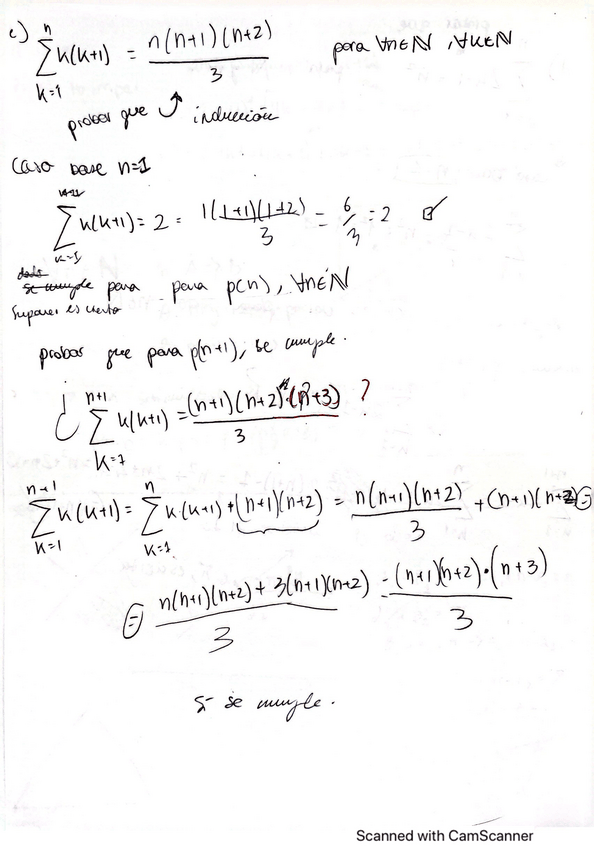 c) ∑_{k=1}^{n} k(k+1) = n(n+1)(n+2)/3 para ∀n∈ℕ, ∀k∈ℕ
probar que ↗ inducción
Caso base n=1
∑_{k=1} k(k+1) = 2 = 1(1+1)(1+2)/3 = 6/3 = 2 ☑
se cumple para para p(n), ∀n∈ℕ
Suponer es cierto
probar que para p(n+1), se cumple.
¿ ∑_{k=1}^{n+1} k(k+1) = (n+1)(n+2)·(n+3)/3 ?
∑_{k=1}^{n+1} k(k+1) = ∑_{k=1}^{n} k(k+1) + (n+1)(n+2) = n(n+1)(n+2)/3 + (n+1)(n+2) ⊜
⊜ n(n+1)(n+2) + 3(n+1)(n+2)/3 = (n+1)(n+2)·(n+3)/3
Si se cumple.
Scanned with CamScanner